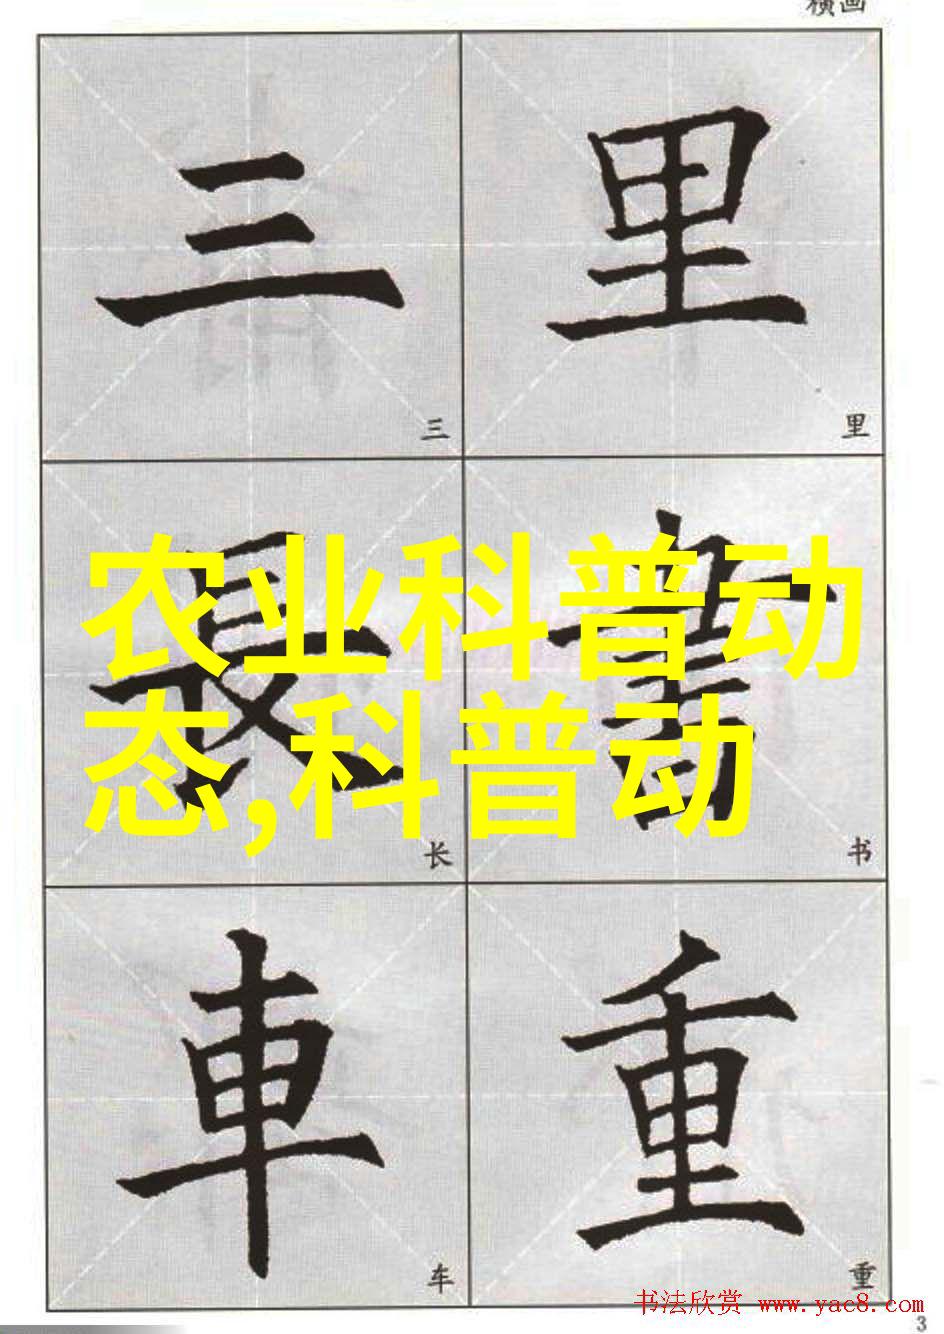 横画
三 里
三 里
長 書
农业科普动
态,科普动
长 书
車 重
车 重
书法欣赏 www.yac8.com
3